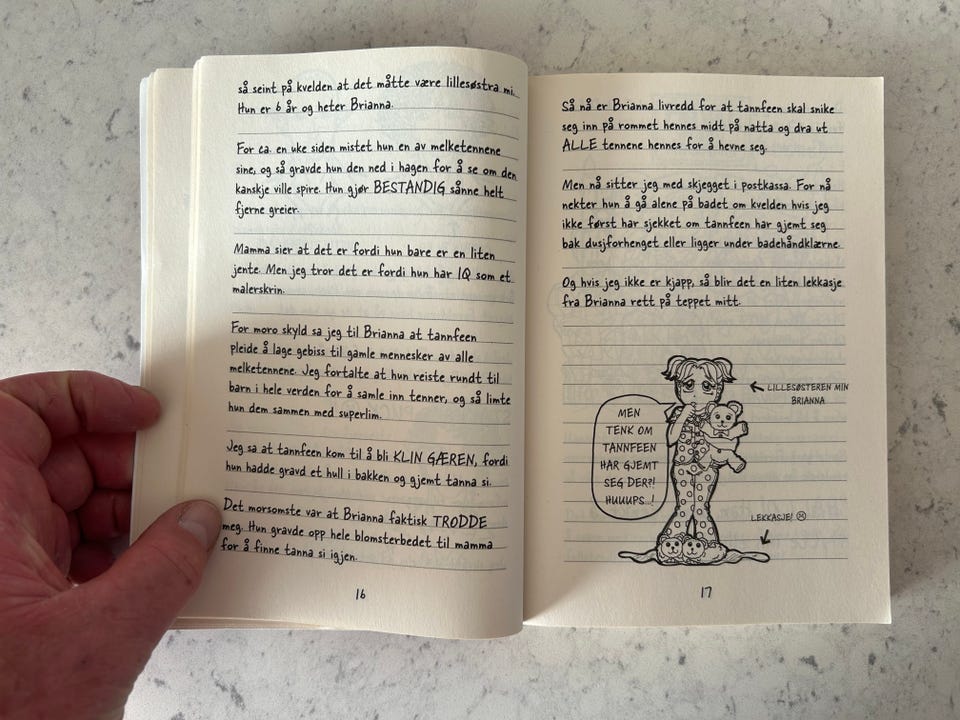 så seint på kvelden at det måtte være lillesøstra mi.
Hun er 6 år og heter Brianna.
For ca. en uke siden mistet hun en av melketennene
sine, og så gravde hun den ned i hagen for å se om den
kanskje ville spire. Hun gjør BESTANDIG sånne helt
fjerne greier.
Mamma sier at det er fordi hun bare er en liten
jente. Men jeg tror det er fordi hun har IQ som et
malerskrin.
For moro skyld sa jeg til Brianna at tannfeen
pleide å lage gebiss til gamle mennesker av alle
melketennene. Jeg fortalte at hun reiste rundt til
barn i hele verden for å samle inn tenner, og så limte
hun dem sammen med superlim.
Jeg sa at tannfeen kom til å bli KLIN GÆREN, fordi
hun hadde gravd et hull i bakken og gjemt tanna si.
Det morsomste var at Brianna faktisk TRODDE
meg. Hun gravde opp hele blomsterbedet til mamma
for å finne tanna si igjen.
16
Så nå er Brianna livredd for at tannfeen skal snike
seg inn på rommet hennes midt på natta og dra ut
ALLE tennene hennes for å hevne seg.
Men nå sitter jeg med skjegget i postkassa. For nå
nekter hun å gå alene på badet om kvelden hvis jeg
ikke først har sjekket om tannfeen har gjemt seg
bak dusjforhenget eller ligger under badehåndklærne.
Og hvis jeg ikke er kjapp, så blir det en liten lekkasje
fra Brianna rett på teppet mitt.
LILLESØSTEREN MIN
BRIANNA
MEN
TENK OM
TANNFEEN
HAR GJEMT
SEG DER?!
HUUUPS...!
LEKKASJE! ☹
17